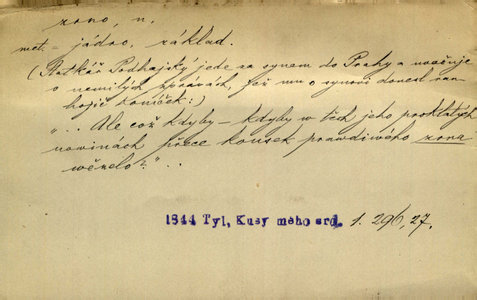 zrno, n.
met. – jádro, základ.
(Statkář Podhajský jede za synem do Prahy a uvažuje
o nemilých zprávách, jež mu o synovi donesl ran-
hojič Koníček:)
„.. Ale což kdyby – kdyby w těch jeho proklatých
novinách přece kousek prawdiwého zrna
wězelo?“ ..
1844 Tyl, Kusy mého srd. 1. 296, 27.